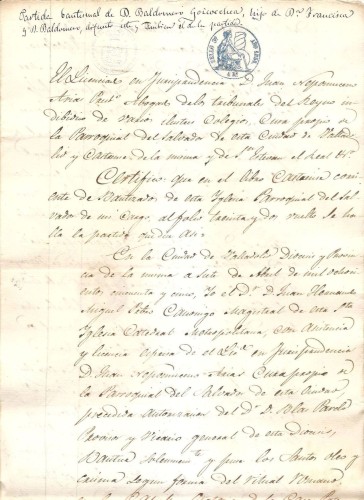 Partida bautismal de D. Baldomero Goicoechea, hijo de Dª Francisca
y D. Baldomero, difunto
El Licenciado en Jurisprudencia D. Juan Nepomuceno
Arias Abogado de los tribunales del Reyno in
dividuo de varios ilustres Colegios, Cura propio de
la Parroquial del Salvador de esta Ciudad de Vallado
lid y Castrense de la misma y de Sn Esteban el Real &ª
Certifico: que en el libro
de Bautizados de esta Iglesia Parroquial del Sal
vador de mi cargo, al folio treinta y dos vuelto se ha
lla la partida que dice Asi
En la Ciudad de Valladolid Diocesis y Provin
cia de la misma a siete de Abril de mil ochoci
entos cincuenta y cinco, Yo el Dr D. Juan Hernando
Miguel Canonigo Magistral de esta Sta
Iglesia Catedral Metropolitana, con Anuencia
y licencia espresa de el Licdo en Jurisprudencia
D. Juan Nepomuceno Arias Cura propio de
la Parroquial del Salvador de esta Ciudad
precedida autorizacion del Dr D. Blas Pardo
Provisor y Vicario general de esta Diocesis,
Bautice Solemnemte y puse los Santos oleo y
crisma segun forma del Ritual Romano